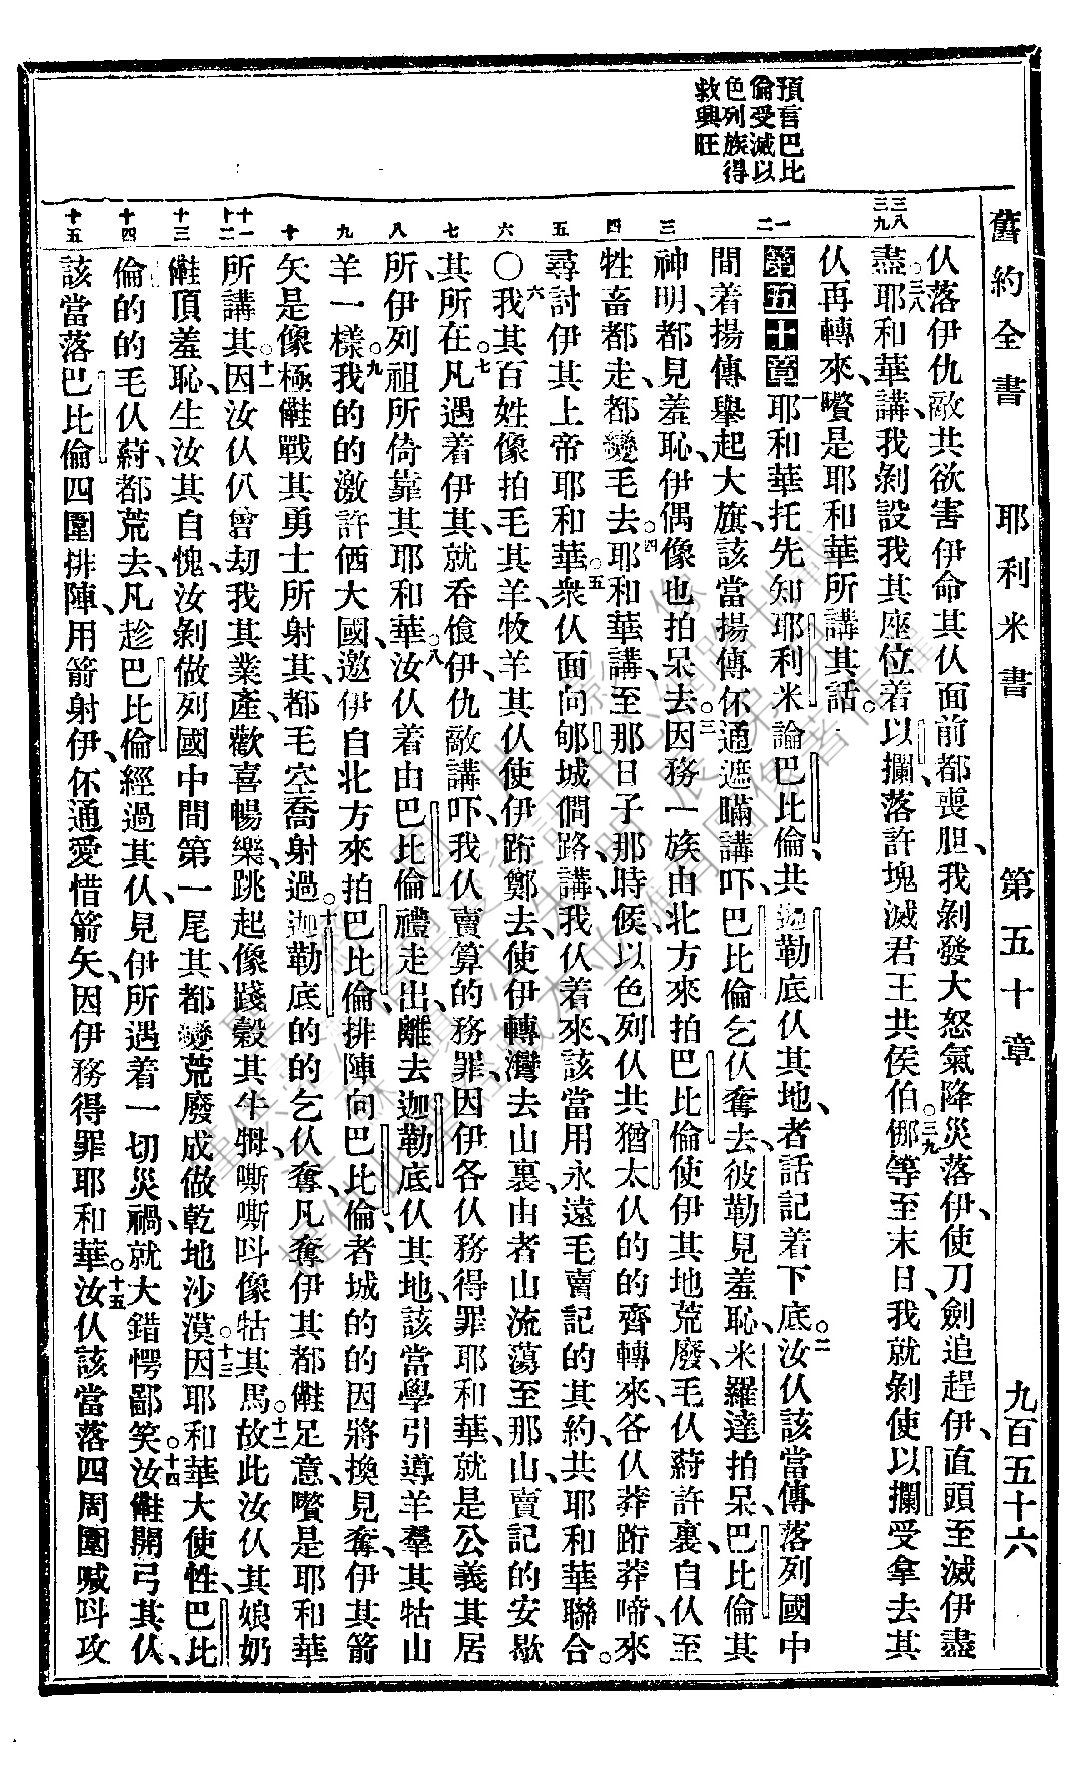 舊約全書　耶利米書　第五十章　九百五十六
預言巴比
倫受滅以
色列族得
救興旺
三八
三九
一
二
三
四
五
六
七
八
九
十
十一
十二
十三
十四
十五
仈落伊仇敵共欲害伊命其仈面前都喪胆、我剝發大怒氣降災落伊、使刀劍追趕伊、直頭至滅伊盡
盡。三八耶和華講、我剝設我其座位着以攔、落許塊滅君王共侯伯。三九㑚等至末日、我就剝使以攔受拿去其
仈再轉來、嚽是耶和華所講其話。
第五十章 一耶和華托先知耶利米論巴比倫、共迦勒底仈其地、者話記着下底。二汝仈該當傳落列國中
間、着揚傳舉起大旗、該當揚傳伓通遮瞞講吓、巴比倫乞仈奪去、彼勒見羞恥、米羅達拍呆、巴比倫其
神明、都見羞恥、伊偶像也拍呆去。三因務一族由北方來拍巴比倫、使伊其地荒廢、毛仈蔚許裏、自仈至
牲畜都走、都變毛去。四耶和華講、至那日子那時候、以色列仈共猶太仈的的齊轉來、各仈莽跡莽啼、來
尋討伊其上帝耶和華。五衆仈面向郇城僩路、講、我仈着來、該當用永遠毛賣記的其約、共耶和華聯合。
〇六我其百姓像拍毛其羊、牧羊其仈使伊跡鄭去、使伊轉灣去山裏、由者山流蕩至那山、賣記的安歇
其所在。七凡遇着伊其、就吞飧伊、仇敵講吓、我仈賣算的務罪、因伊各仈務得罪耶和華、就是公義其居
所、伊列祖所倚靠其耶和華。八汝仈着由巴比倫禮走出、離去迦勒底仈其地、該當學引導羊羣其牯山
羊一樣。九我的的激許㑚大國、邀伊自北方來拍巴比倫、排陣向巴比倫、者城的的因將換見奪、伊其箭
矢是像極㑼戰其勇士所射其、都毛空喬射過。十迦勒底的的乞仈奪、凡奪伊其都㑼足意、嚽是耶和華
所講其。十一因汝仈仈曾刧我其業產、歡喜暢樂、跳起像踐穀其牛㛄、嘶嘶呌像牯其馬。十二故此汝仈其娘奶
㑼頂羞恥、生汝其自愧、汝剝做列國中間第一尾其、都變荒廢成做乾地沙漠。十三因耶和華大使性、巴比
倫的的毛仈蔚、都荒去、凡趁巴比倫經過其仈、見伊所遇着一切災禍、就大錯愕鄙笑。十四汝㑼開弓其仈、
該當落巴比倫四圍排陣、用箭射伊、伓通愛惜箭矢、因伊務得罪耶和華。十五汝仈該當落四周圍喊呌攻